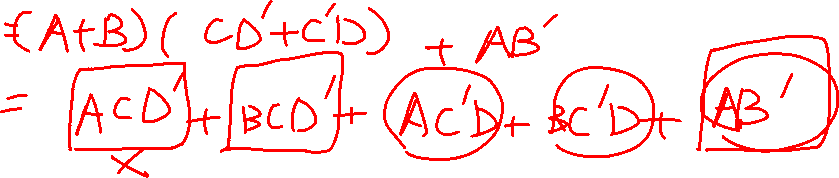 =(A+B)( CD'+C'D) + AB'
= ACD' + BCD' + AC'D + BC'D + AB'
X